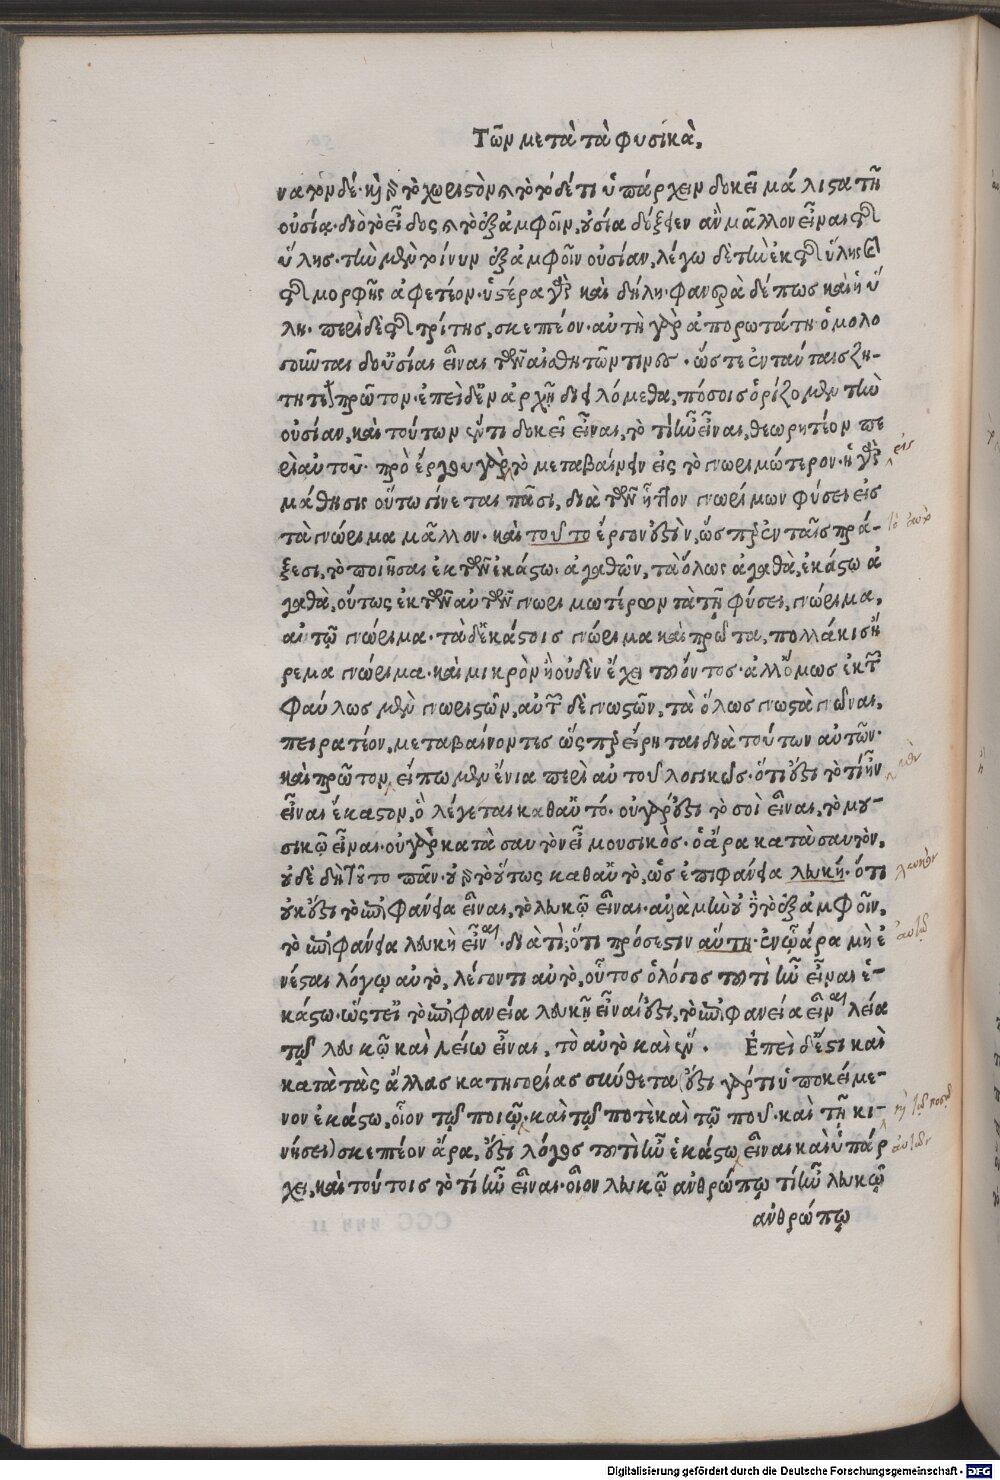 Τῶν μετὰ τὰ φυσικὰ.
νατον δέ· καὶ γὰρ τὸ χωριστὸν καὶ τὸ τόδέ τι ὑπάρχειν δοκεῖ μάλιστα τῇ
οὐσίᾳ· διὸ τὸ εἶδος καὶ τὸ ἐξ ἀμφοῖν, οὐσία δόξειεν ἂν μᾶλλον εἶναι τῆς
ὕλης· τὴν μὲν τοίνυν ἐξ ἀμφοῖν οὐσίαν, λέγω δὲ τὴν ἐκ τῆς ὕλης καὶ
τῆς μορφῆς ἀφετέον· ὑστέρα γὰρ καὶ δήλη· φανερὰ δέ πως καὶ ἡ ὕ
λη· περὶ δὲ τῆς τρίτης, σκεπτέον· αὐτὴ γὰρ ἀπορωτάτη ὁμολο
γοῦνται δ' οὐσίαι εἶναι τῶν αἰσθητῶν τινες· ὥστε ἐν ταύταις ζη-
τητέον πρῶτον· ἐπεὶ δ' ἐν ἀρχῇ διειλόμεθα, πόσοις ὁρίζομεν τὴν
οὐσίαν, καὶ τούτων ἕν τι δοκεῖ εἶναι, τὸ τί ἦν εἶναι, θεωρητέον πε
ρὶ αὐτοῦ· πρὸ ἔργου γὰρ τὸ μεταβαίνειν εἰς τὸ γνωριμώτερον· ἡ γὰρ
μάθησις οὕτω γίνεται πᾶσι, διὰ τῶν ἧττον γνωρίμων φύσει εἰς
τὰ γνώριμα μᾶλλον· καὶ τοῦτο ἔργον ἐστὶν, ὥσπερ ἐν ταῖς πρά-
ξεσι, τὸ ποιῆσαι ἐκ τῶν ἑκάστῳ ἀγαθῶν, τὰ ὅλως ἀγαθὰ, ἑκάστῳ ἀ
γαθὰ, οὕτως ἐκ τῶν αὐτῶν γνωριμωτέρων τὰ τῇ φύσει, γνώριμα,
αὐτῷ γνώριμα· τὰ δ' ἑκάστοις γνώριμα καὶ πρῶτα, πολλάκις ἠ
ρεμα γνώριμα· καὶ μικρὸν ἢ οὐδὲν ἔχει τοῦ ὄντος· ἀλλ' ὅμως ἐκ τῶν
φαύλως μὲν γνωριστῶν, αὐτῶν δὲ γνωστῶν, τὰ ὅλως γνωστὰ γνῶναι,
πειρατέον, μεταβαίνοντες ὥσπερ εἴρηται διὰ τούτων αὐτῶν·
καὶ πρῶτον, εἴπωμεν ἔνια περὶ αὐτοῦ λογικῶς· ὅτι ἐστὶ τὸ τί ἦν
εἶναι ἕκαστον, ὃ λέγεται καθ' αὑτό· οὐ γάρ ἐστι τὸ σοὶ εἶναι, τὸ μου-
σικῷ εἶναι· οὐ γὰρ κατὰ σαυτὸν εἶ μουσικὸς· ὃ ἄρα κατὰ σαυτὸν,
οὐδὲ δὴ τοῦτο πᾶν· οὐ γὰρ τὸ οὕτως καθ' αὑτὸ, ὡς ἐπιφάνεια λευκή· ὅτι
οὐκ ἔστι τὸ ἐπιφανεία εἶναι, τὸ λευκῷ εἶναι· ἀλλὰ μὴν οὐδὲ τὸ ἐξ ἀμφοῖν,
τὸ ἐπιφανεία λευκὴ εἶναι· διὰ τί; ὅτι πρόσεστιν αὕτη· ἐν ᾧ ἄρα μὴ ἐ
νέσται λόγῳ αὐτὸ, λέγοντι αὐτὸ, οὗτος ὁ λόγος τοῦ τί ἦν εἶναι ἑ-
κάστῳ· ὥστ' εἰ τὸ ἐπιφανεία λευκῇ εἶναί ἐστι, τὸ ἐπιφανεία εἶναι λεία
τῷ λευκῷ καὶ λείῳ εἶναι, τὸ αὐτὸ καὶ ἕν. Ἐπεὶ δ' ἔστι καὶ
κατὰ τὰς ἄλλας κατηγορίας σύνθετα (ἔστι γάρ τι ὑποκείμε-
νον ἑκάστῳ, οἷον τῷ ποιῷ· καὶ τῷ ποτὲ καὶ τῷ ποῦ· καὶ τῇ κι-
νήσει) σκεπτέον ἄρα, ἔστι λόγος τοῦ τί ἦν ἑκάστῳ εἶναι καὶ ὑπάρ
χει, καὶ τούτοις τὸ τί ἦν εἶναι· οἷον λευκῷ ἀνθρώπῳ τί ἦν λευκῷ
ἀνθρώπῳ
εἰς
Digitalisierung gefördert durch die Deutsche Forschungsgemeinschaft - DFG